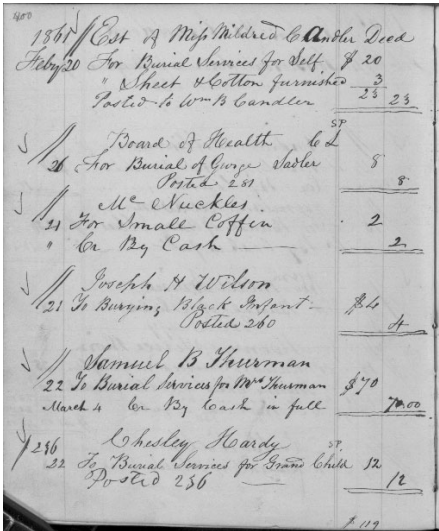 400
1865 // Est of Miss Mildred C Candler Decd
Feby 20 For Burial Services for Self $ 20
" Sheet & Cotton furnished 3
Posted to Wm B Candler 23 23
// Board of Health C L SP
20 For Burial of George Sadler 8
Posted 281 8
// Mc Nuckles
21 For Small Coffin 2
" Cr By Cash — 2
// Joseph H Wilson
21 To Burying Black Infant $4
Posted 260 4
// Samuel B Thurman
22 To Burial Services for Mrs Thurman $70
March 4 Cr By Cash in full 70.00
256 Chesley Hardy SP.
22 To Burial Services for Grand Child 12
Posted 256 — 12
$ 119